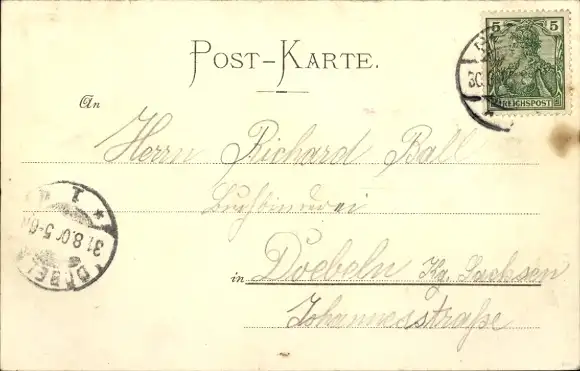 5 5
REICHSPOST
30.
POST-KARTE.
An
Herrn Richard Ball
Buchbinderei
in Doebeln Kg. Sachsen
Johannesstraße
1
31.8.00 5-6N
DÖBELN